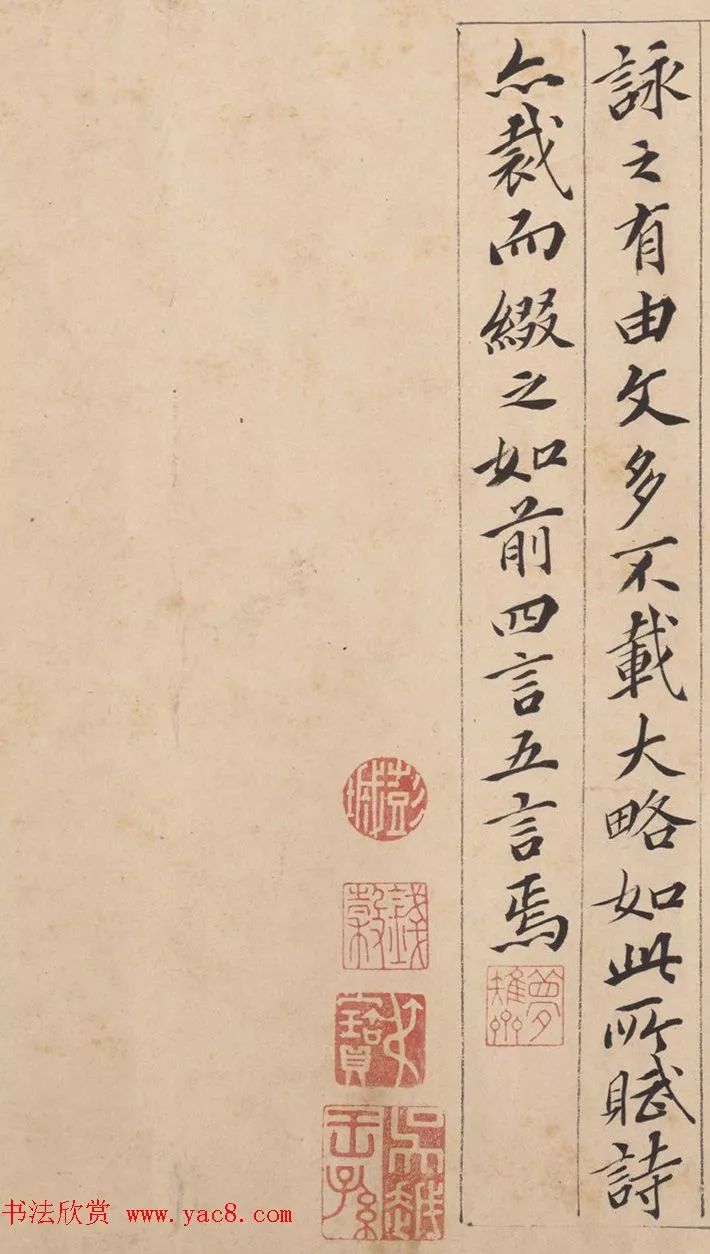 詠之有由文多不載大略如此所賦詩
亦裁而綴之如前四言五言焉
彭城
錢穀
叔寶
吳越王孫
书法欣赏 www.yac8.com